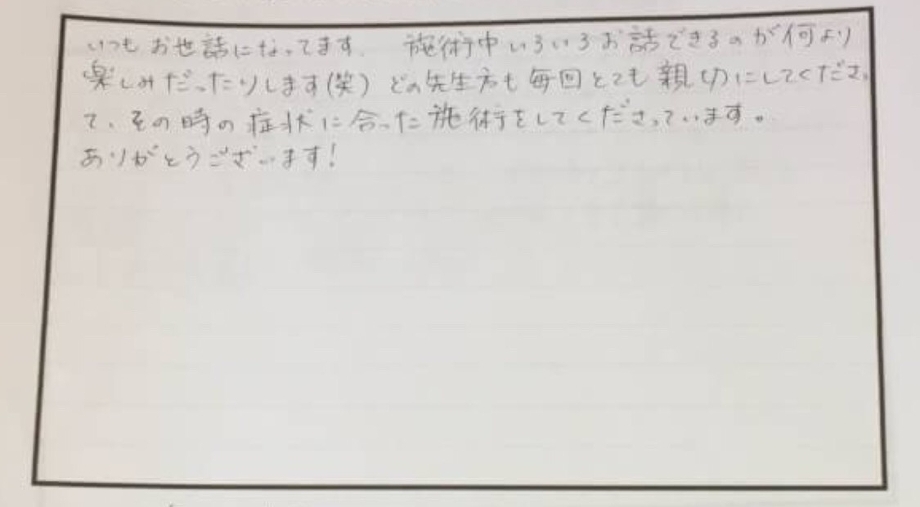 いつもお世話になってます. 施術中いろいろお話できるのが何より
楽しみだったりします(笑) どの先生方も毎回とても親切にしてくださっ
て、その時の症状に合った施術をしてくださっています。
ありがとうございます!